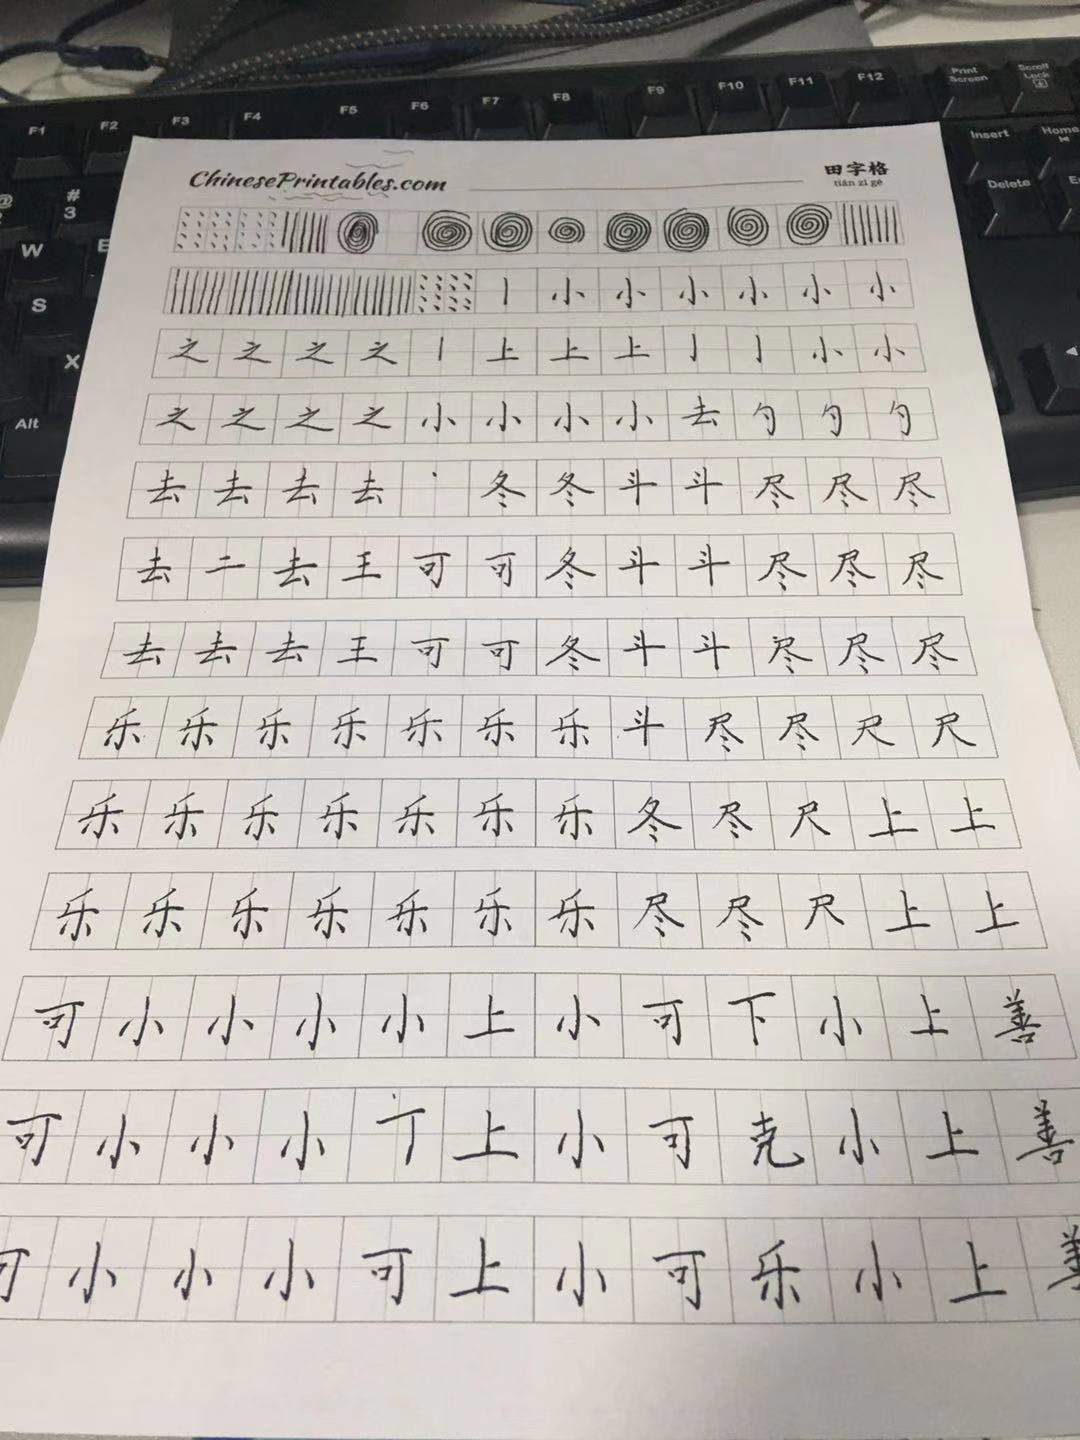 F1 F2 F3 F4 F5 F6 F7 F8 F9 F10 F11 F12 Print Screen Scroll Lock
@ # Insert Home
3
W E Delete
S
X
Alt
ChinesePrintables.com 田字格
tián zì gé
小 小 小 小 小 小
之 之 之 之 丨 上 上 上 亅 亅 小 小
之 之 之 之 小 小 小 小 去 勺 勺 勺
去 去 去 去 丶 冬 冬 斗 斗 尽 尽 尽
去 二 去 王 可 可 冬 斗 斗 尽 尽 尽
去 去 去 王 可 可 冬 斗 斗 尽 尽 尽
乐 乐 乐 乐 乐 乐 乐 斗 尽 尽 尺 尺
乐 乐 乐 乐 乐 乐 乐 冬 尽 尺 上 上
乐 乐 乐 乐 乐 乐 乐 尽 尽 尺 上 上
可 小 小 小 小 上 小 可 下 小 上 善
可 小 小 小 丁 上 小 可 克 小 上 善
可 小 小 小 可 上 小 可 乐 小 上 善